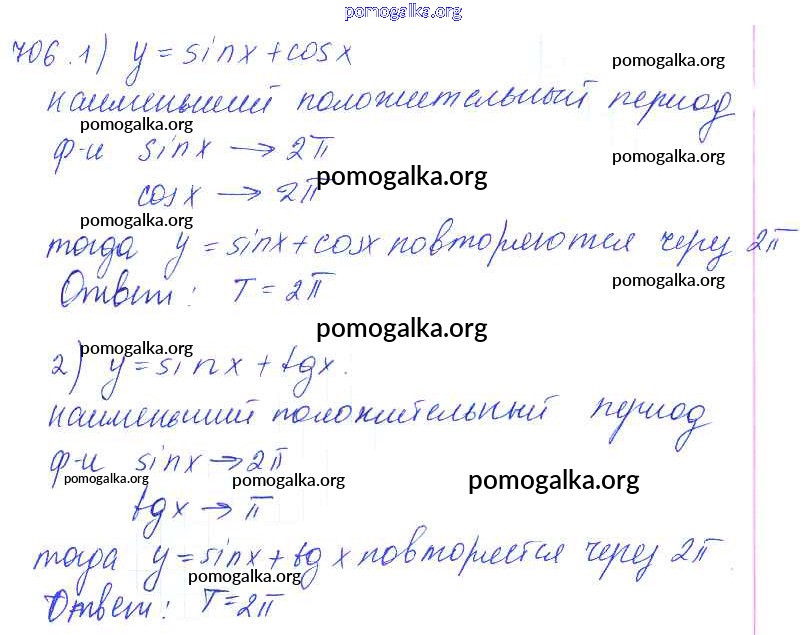 pomogalka.org
706.1) y = sinx + cosx
pomogalka.org
наименьший положительный период
pomogalka.org
ф-и sinx → 2π
pomogalka.org
pomogalka.org
cosx → 2π
pomogalka.org
тогда y = sinx + cosx повторяются через 2π
pomogalka.org
Ответ: T = 2π
pomogalka.org
pomogalka.org
2) y = sinx + tgx.
наименьший положительный период
ф-и sinx → 2π
pomogalka.org pomogalka.org pomogalka.org
tgx → π
тогда y = sinx + tgx повторяется через 2π
pomogalka.org
Ответ: T = 2π
pomogalka.org